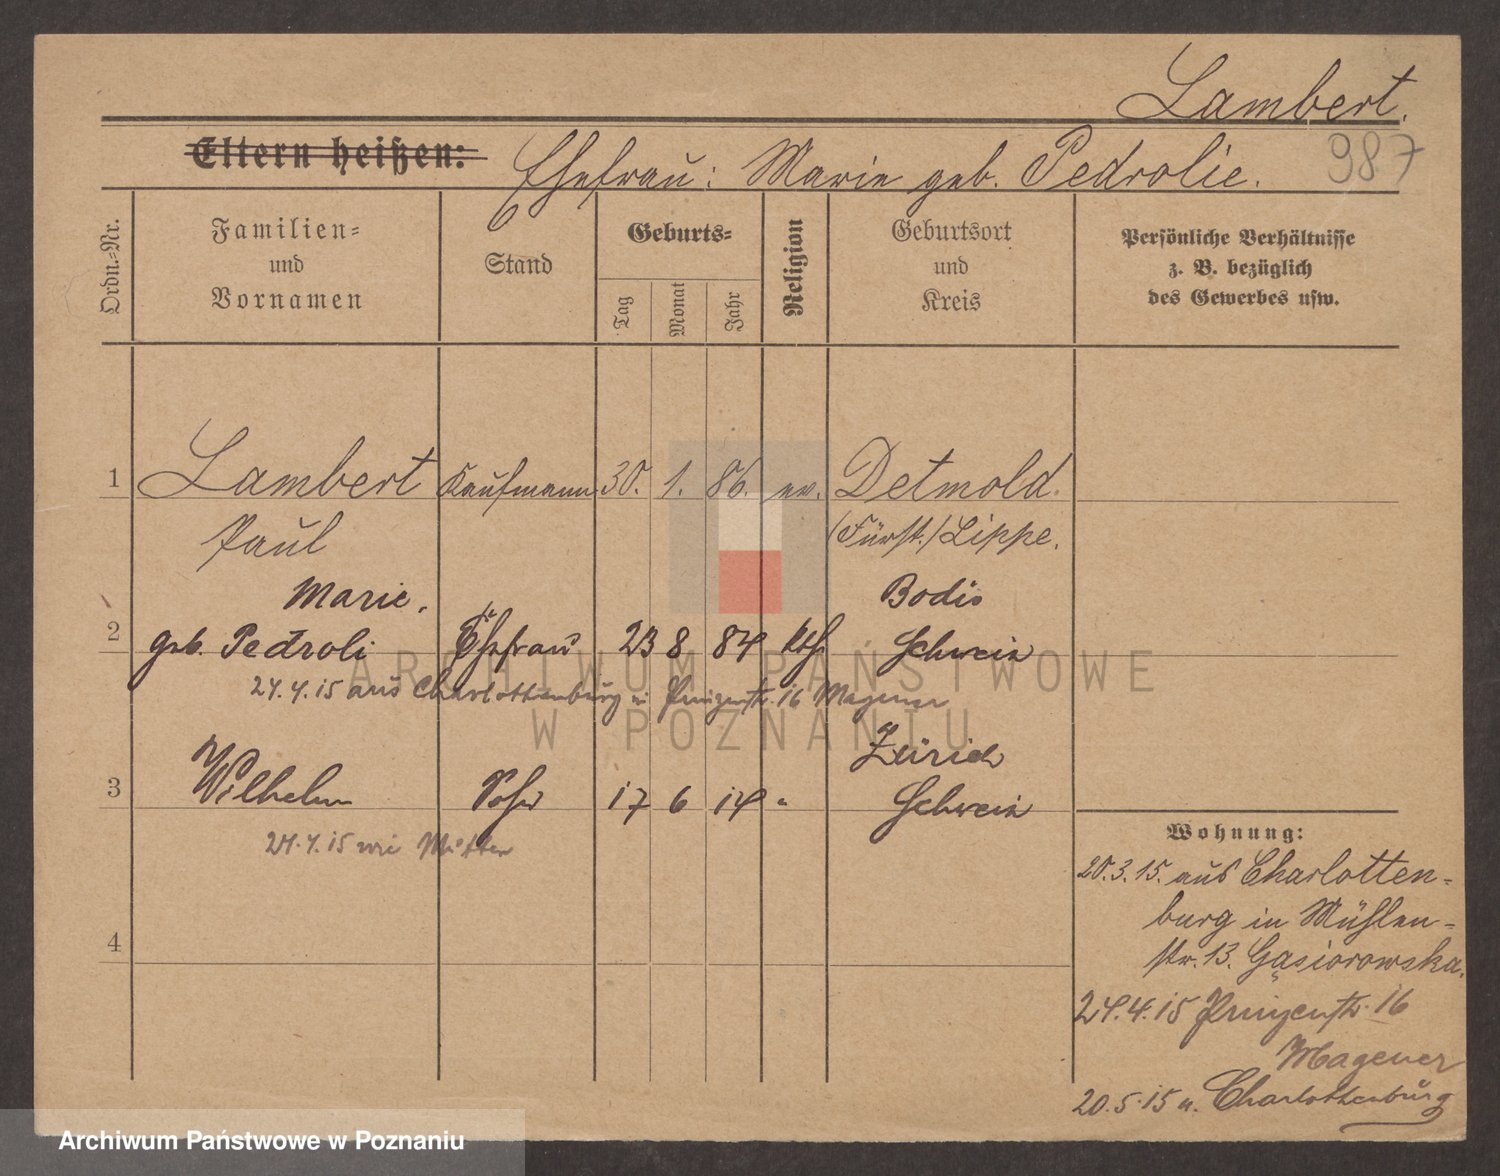 Lambert.
987
Eltern heißen:
Ehefrau: Marie geb. Pedrolie.
Ordn.=Nr.
Familien=
und
Vornamen
Stand
Geburts=
Tag
Monat
Jahr
Religion
Geburtsort
und
Kreis
Persönliche Verhältnisse
z. B. bezüglich
des Gewerbes usw.
1 Lambert Kaufmann 30. 1. 86. ev. Detmold.
Paul (Fürst.) Lippe.
Marie, Bodio
2 geb. Pedroli Ehefrau 23 8 84 kth Schweiz
24.4.15 aus Charlottenburg in Prinzenstr. 16 Magener
Zürich
3 Wilhelm Sohn 17 6 14 " Schweiz
24.4.15 wie Mutter
4
Wohnung:
20.3.15. aus Charlotten=
burg in Mühlen=
str. 13. Gąsiorowska.
24.4.15 Prinzenstr. 16
Magener
20.5.15 n. Charlottenburg
ARCHIWUM PAŃSTWOWE
W POZNANIU
Archiwum Państwowe w Poznaniu